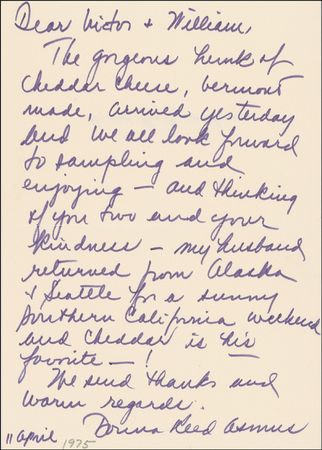 Dear Victor + William,
The gorgeous hunk of
cheddar cheese, Vermont
made, arrived yesterday
and we all look forward
to sampling and
enjoying — and thinking
of you two and your
kindness — my husband
returned from Alaska
+ Seattle for a sunny
Southern California weekend
and cheddar is his
favorite — !
We send thanks and
warm regards.
Donna Reed Asmus
11 April 1975